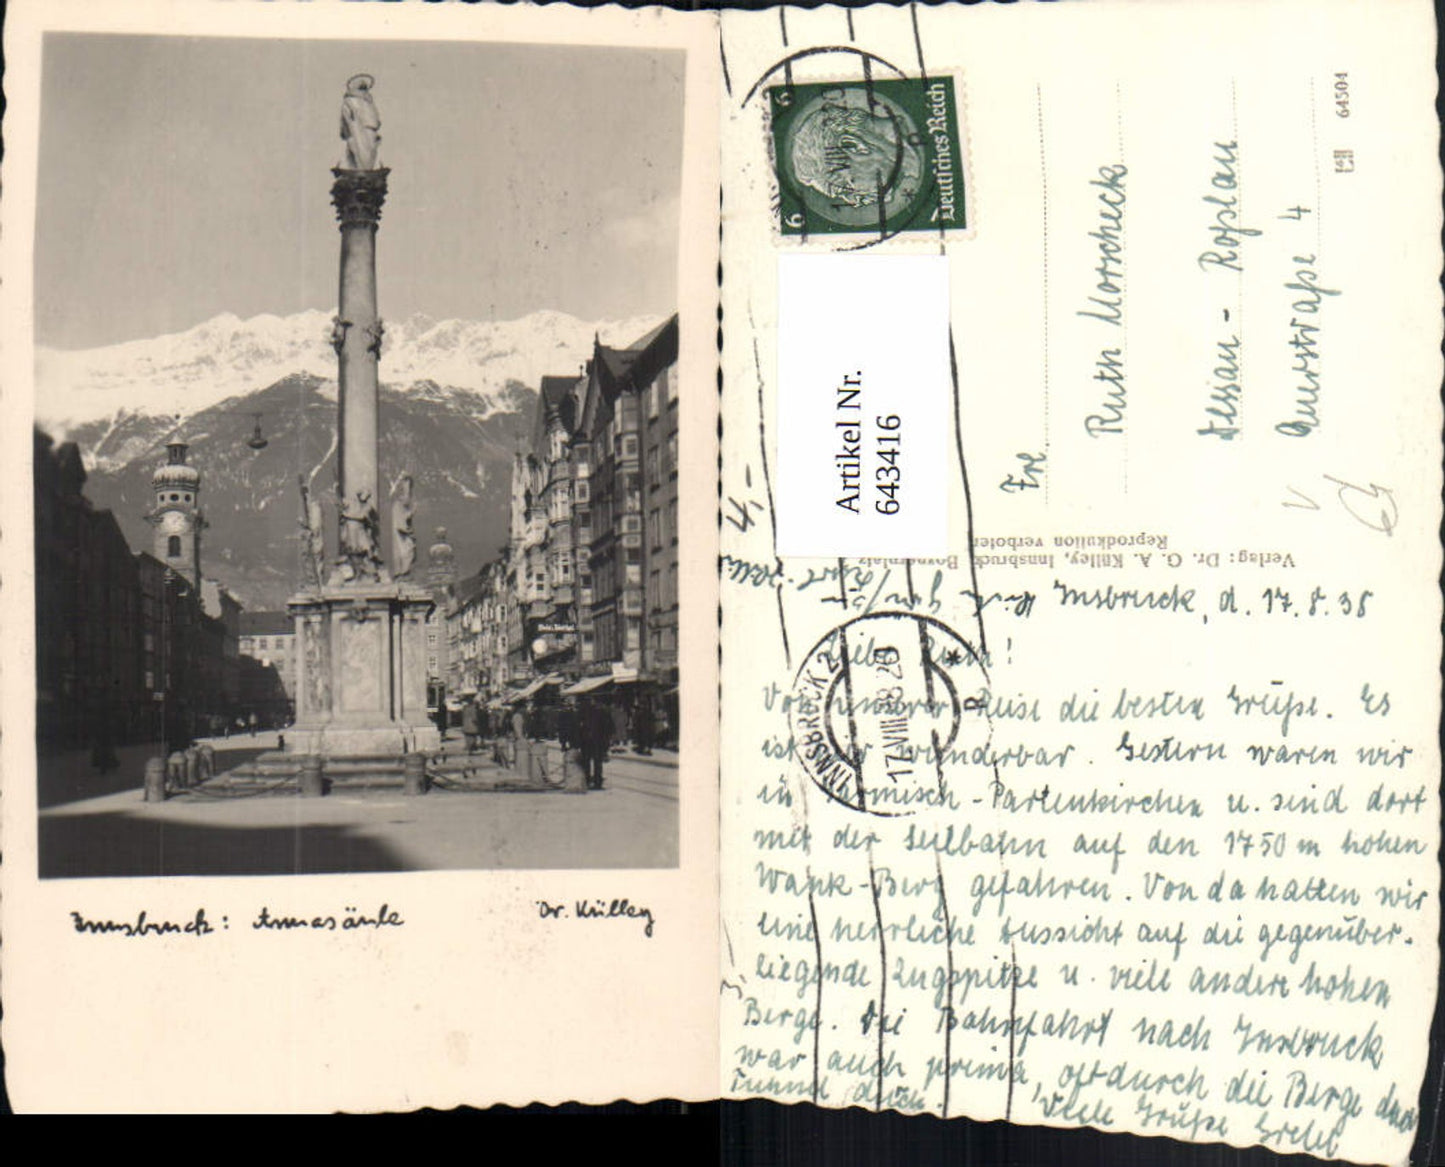 Innsbruck: Annasäule
Dr. Külley
6
6
Deutsches Reich
17.VIII. 20
Artikel Nr.
643416
64504
Frl.
Ruth Morscheck
Dessau - Roßlau
Querstraße 4
Verlag: Dr. G. A. Külley, Innsbruck, Boznerplatz
Reprodkution verboten
4,-
INNSBRUCK 2
17.VIII.38 20
Innsbruck, d. 17.8.38
Liebe Ruth!
Von unserer Reise die besten Grüße. Es
ist hier wunderbar. Gestern waren wir
in Garmisch-Partenkirchen u. sind dort
mit der Seilbahn auf den 1750 m hohen
Wank-Berg gefahren. Von da hatten wir
eine herrliche Aussicht auf die gegenüber-
liegende Zugspitze u. viele andere hohen
Berge. Die Bahnfahrt nach Innsbruck
war auch prima, oft durch die Berge
Tunnel durch. Viele Grüße Gretel